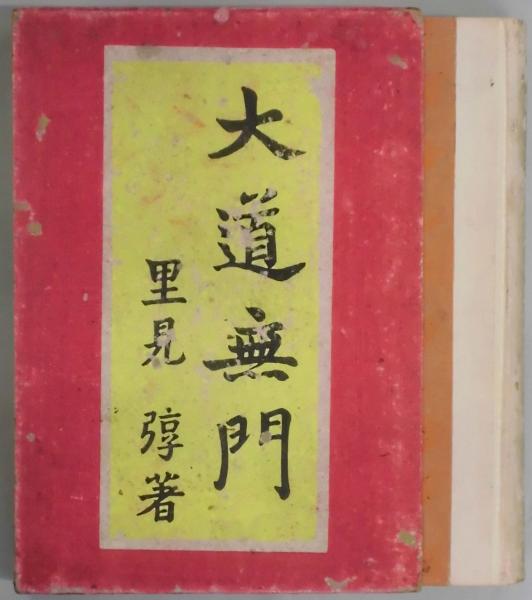 大道無門
里見弴著